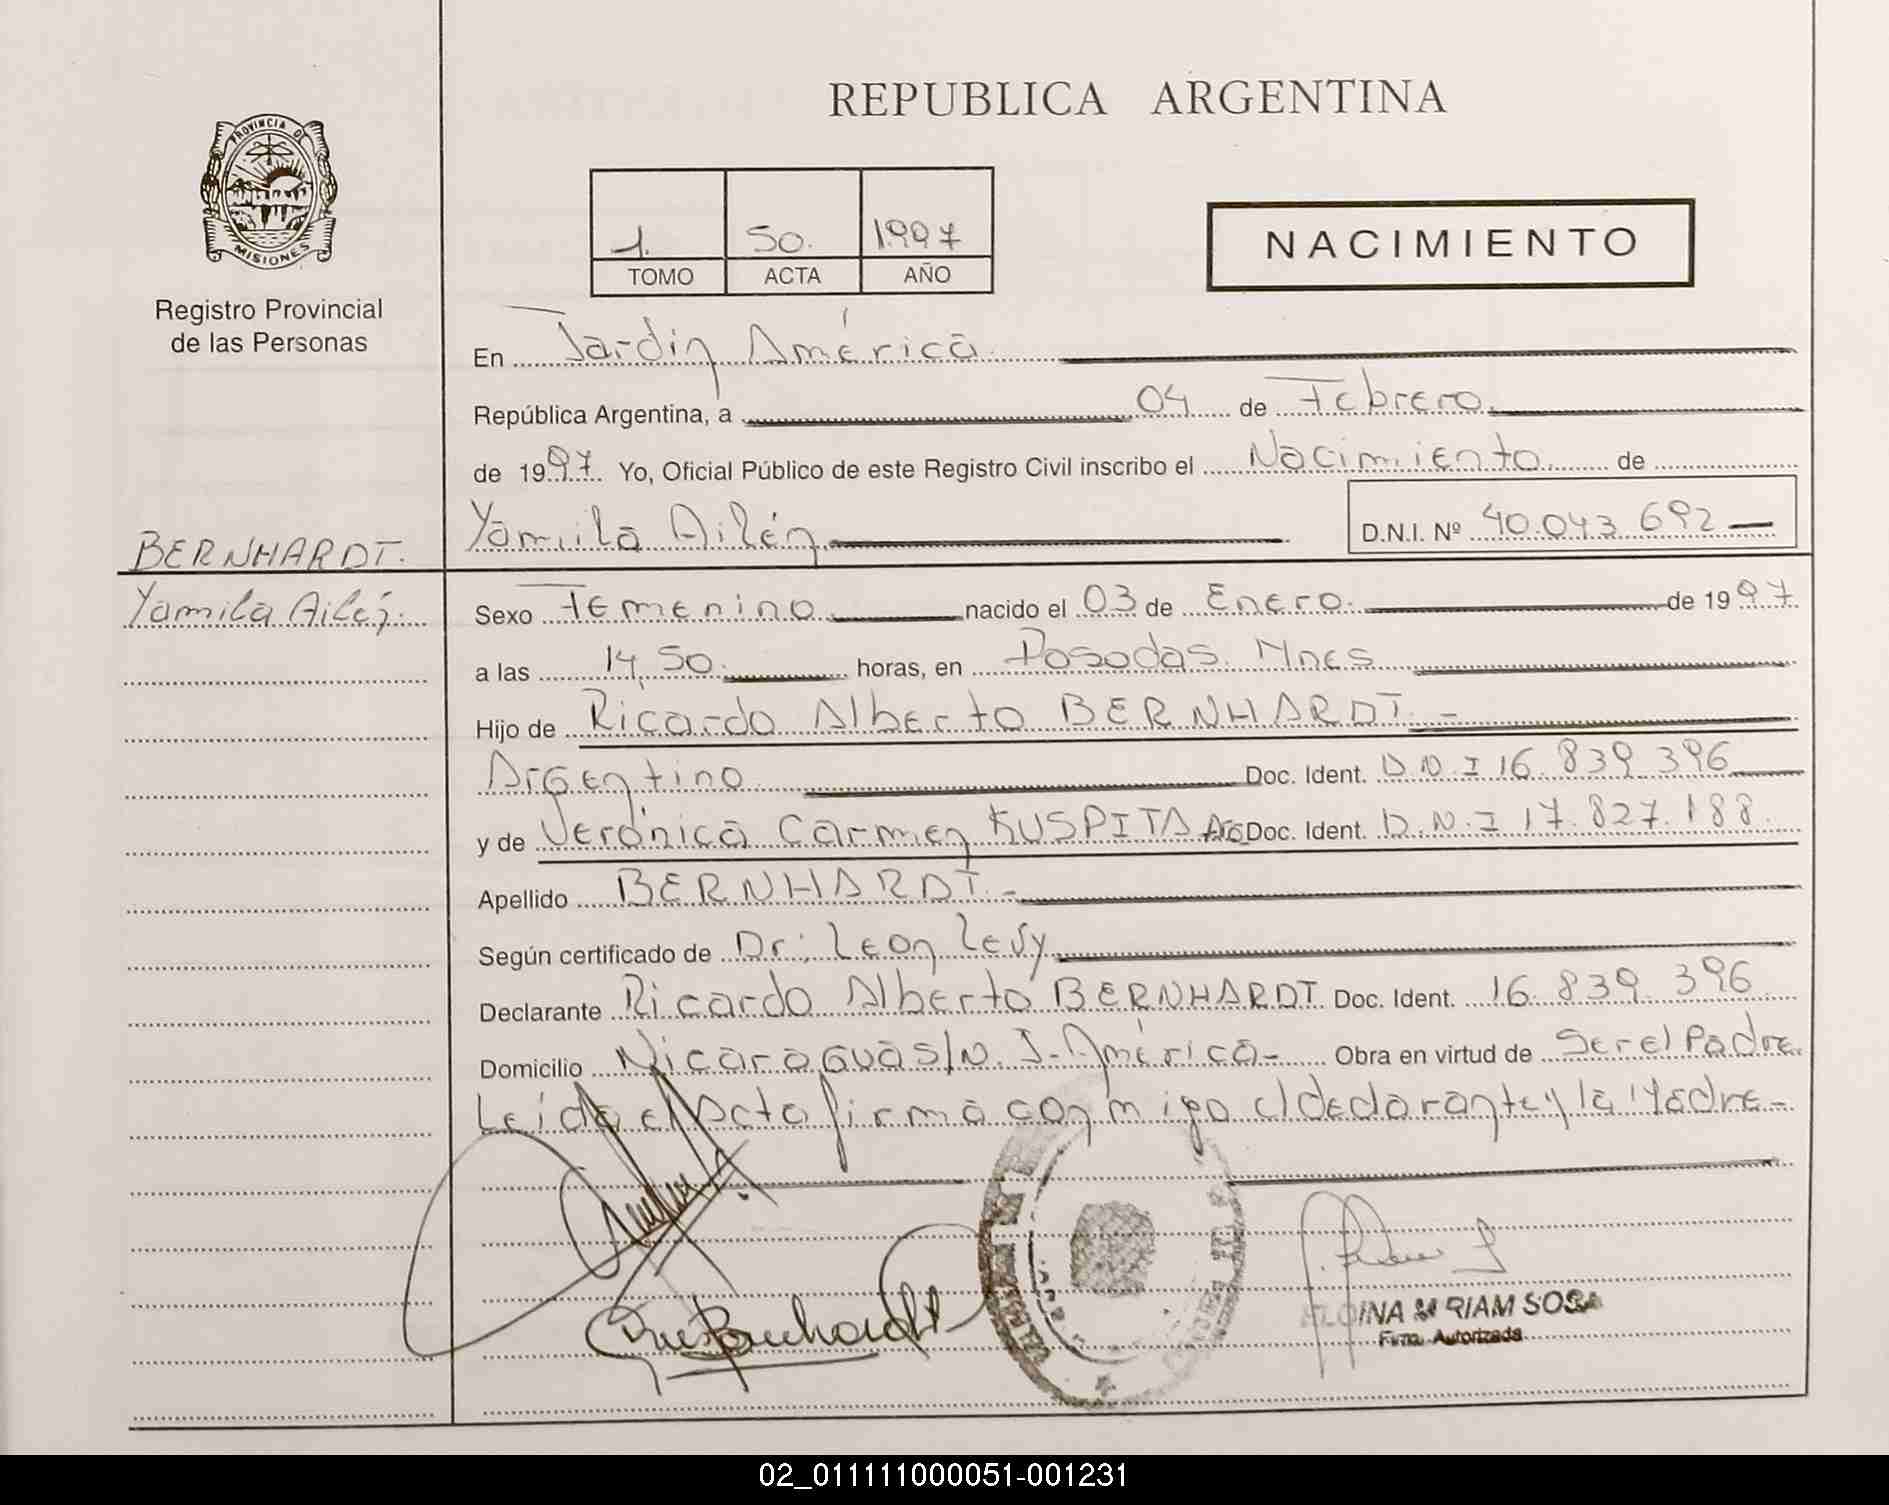 REPUBLICA ARGENTINA
PROVINCIA DE
MISIONES
Registro Provincial
de las Personas
1. 50. 1.997
TOMO ACTA AÑO
NACIMIENTO
En Jardín América
República Argentina, a 04 de Febrero
de 1997. Yo, Oficial Público de este Registro Civil inscribo el Nacimiento de
Yamila Ailén D.N.I. Nº 40.043.692
BERNHARDT.
Yamila Ailén.
Sexo Femenino nacido el 03 de Enero. de 1997
a las 14,50. horas, en Posadas. Mnes
Hijo de Ricardo Alberto BERNHARDT. -
Argentino Doc. Ident. D.N.I 16.839.396
y de Verónica Carmen KUSPITA Doc. Ident. D.N.I 17.827.188.
Apellido BERNHARDT. -
Según certificado de Dr: Leon Levy
Declarante Ricardo Alberto BERNHARDT Doc. Ident. 16.839.396
Domicilio Nicaragua s/N. J. América - Obra en virtud de Ser el Padre.
Leída el Acta firma conmigo el declarante y la Madre -
ELOINA MIRIAM SOSA
Firma Autorizada
02_011111000051-001231